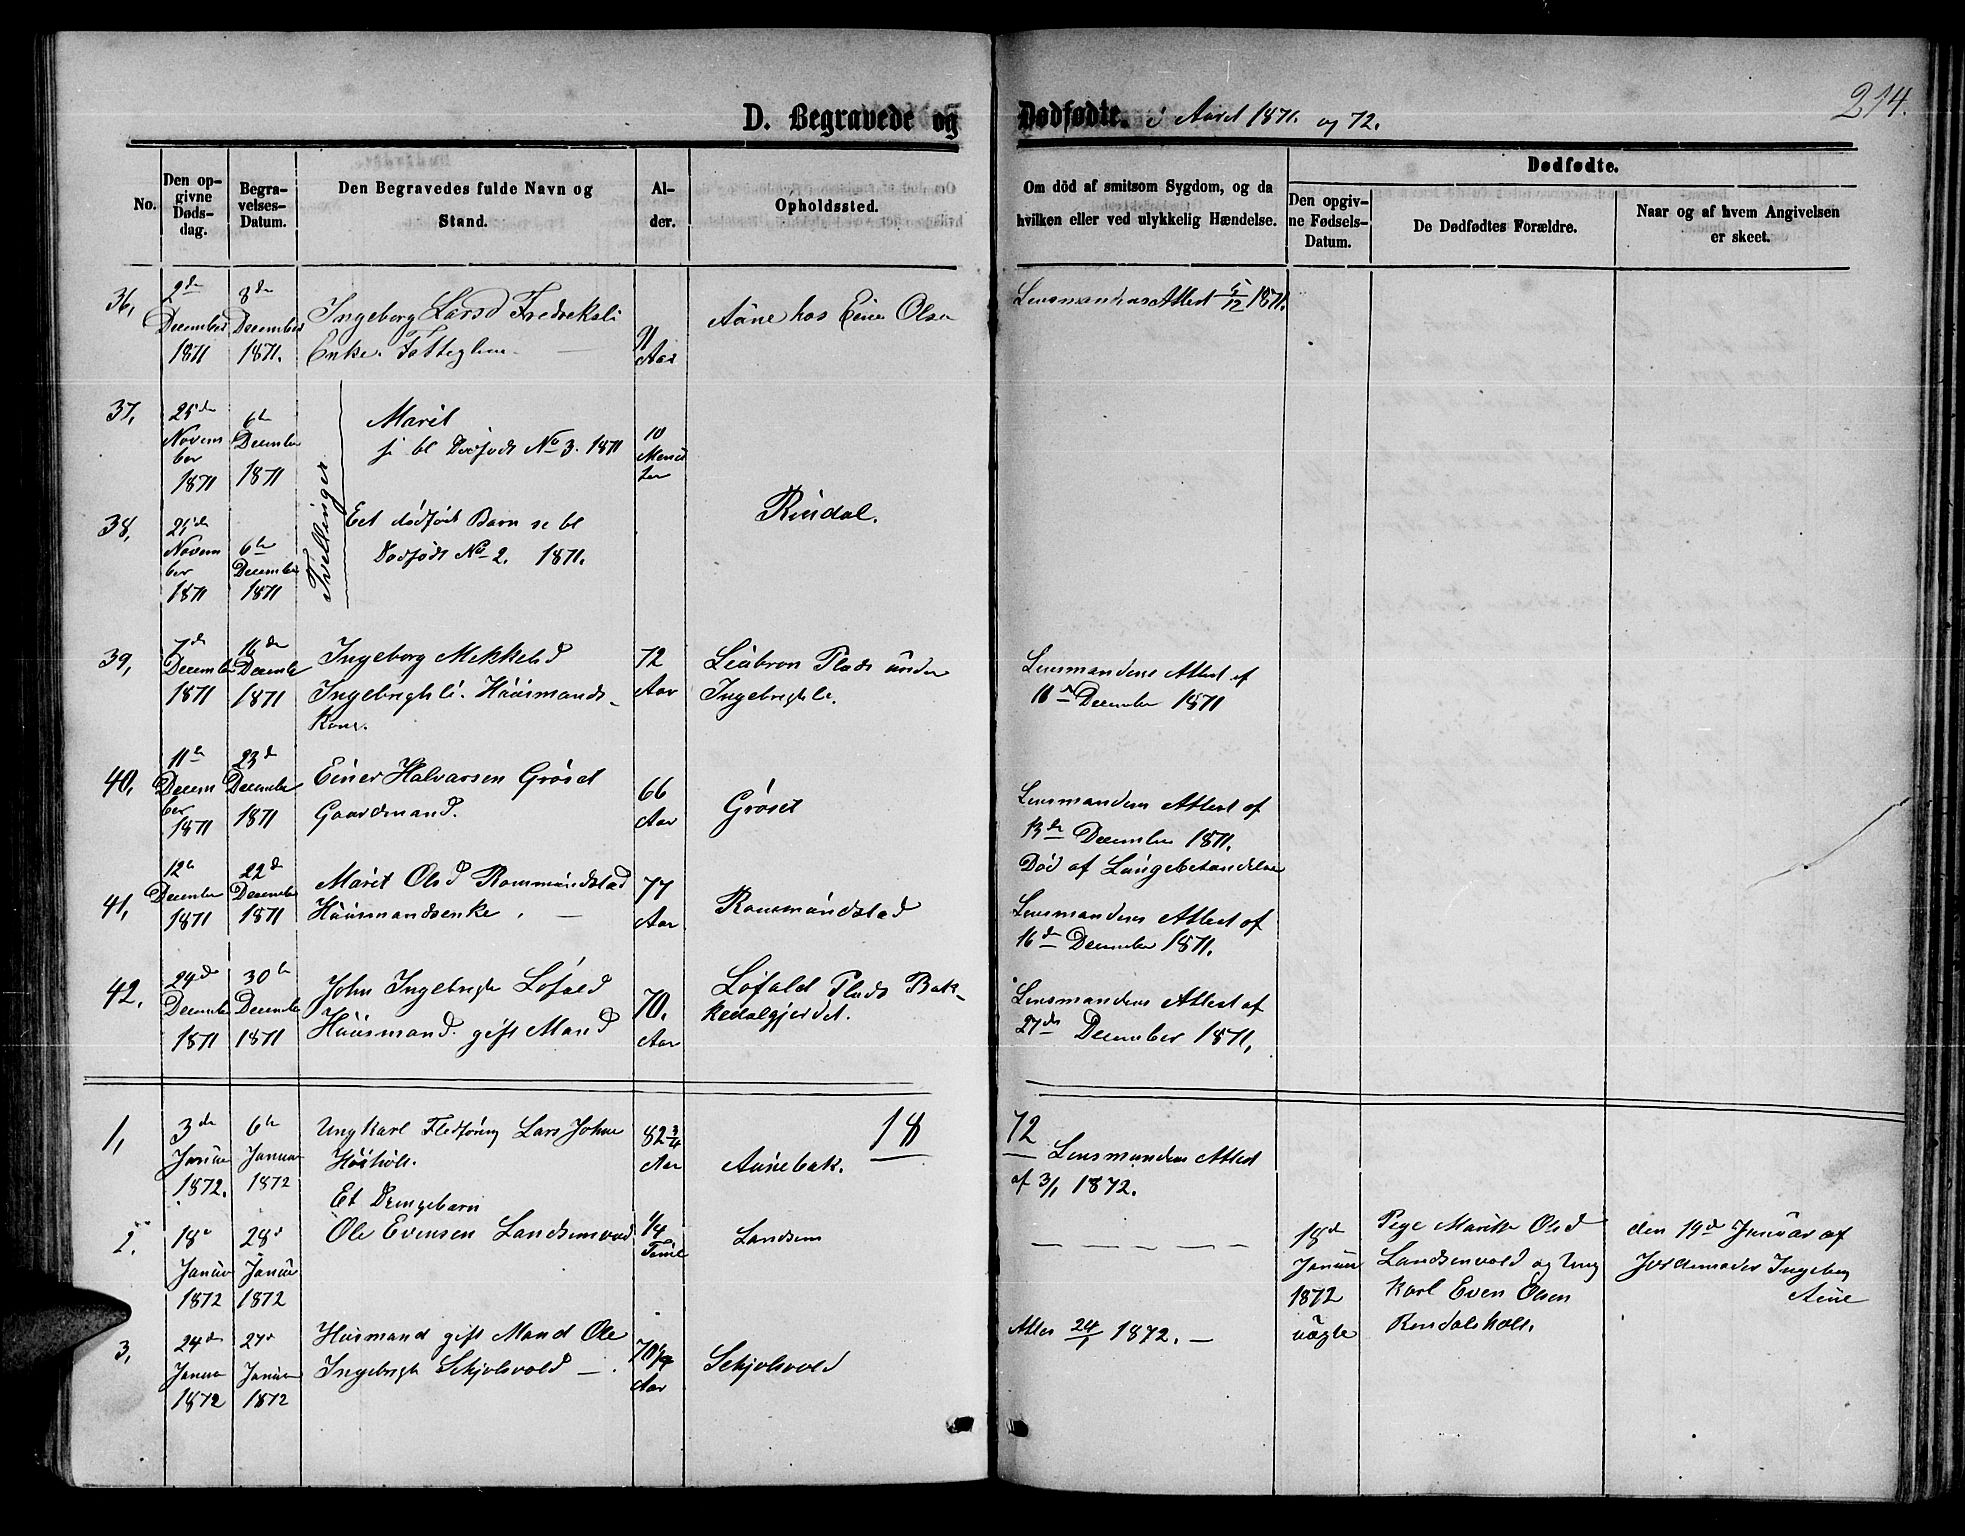 D. Begravede og Dødfødte. i Aaret 1871. og 72.
214.
No.
Den opgivne Dødsdag.
Begravelses-Datum.
Den Begravedes fulde Navn og Stand.
Alder.
Opholdssted.
Om död af smitsom Sygdom, og da hvilken eller ved ulykkelig Hændelse.
Dødfødte.
Den opgivne Fødsels-Datum.
De Dødfødtes Forældre.
Naar og af hvem Angivelsen er skeet.
36,
2de
December
1871
8de
December
1871.
Ingeborg Larsd Fredreksli
Enke.
91
Aar
Aune hos Einer Olsen
Lensmandens Attest 5/12 1871.
37,
25de
Novem
ber
1871
6te
December
1871
Tvillinger
Marit
Dødfødt No 3. 1871
10
38,
25de
Novem
ber
1871
6te
December
1871
Eet dødfødt Barn se bl
Dødfødt No 2. 1871.
Rindal.
39,
7de
December
1871
16de
December
1871
Ingeborg Mekkelsd
Ingebrigtsli. Huusmands-
kone.
72
Aar
Liabron Plads under
Ingebrigtsli.
Lensmandens Attest af
December 1871
40,
11te
Decem
ber
1871
23de
December
1871
Einer Halvarsen Grøset
Gaardmand.
66
Aar
Grøset
Lensmandens Attest af
13de December 1871.
Død af Lungebetændelse
41,
12te
December
1871
22de
December
1871
Marit Olsd Rommundstad
Huusmandsenke. —
77
Aar
Rommundstad
Lensmandens Attest af
16de December 1871.
42.
24de
December
1871
30te
December
1871
John Ingebrigts Løfald
Huusmand gift Mand
70.
Aar
Løfald Plads Bak-
kedalgjerdet.
Lensmandens Attest af
27de December 1871.
18 72
1,
3de
Januar
1872.
6te
Januar
1872
Ungkarl Fledføring Lars Johns
82 3/4
Aar
Aunebak.
Lensmandens Attest
af 3/1 1872.
2.
18de
Januar
1872
28de
Januar
1872
Et Drengebarn
Ole Evensen Landsemvold
1/4
Time
Landsem
— — — — —
18de
Januar
1872
uægte
Pige Marit Olsd
Landsemvold og Ung
karl Even Olsen
Rindalsholt.
den 19de Januar af
Jordemoder Ingeborg
Aune
3,
24de
Januar
1872
27de
Januar
1872
Husmand gift Mand Ole
Ingebrigts Skjolsvold —.
70 1/4
Aar
Skjolsvold
Attes 24/1 1872. —